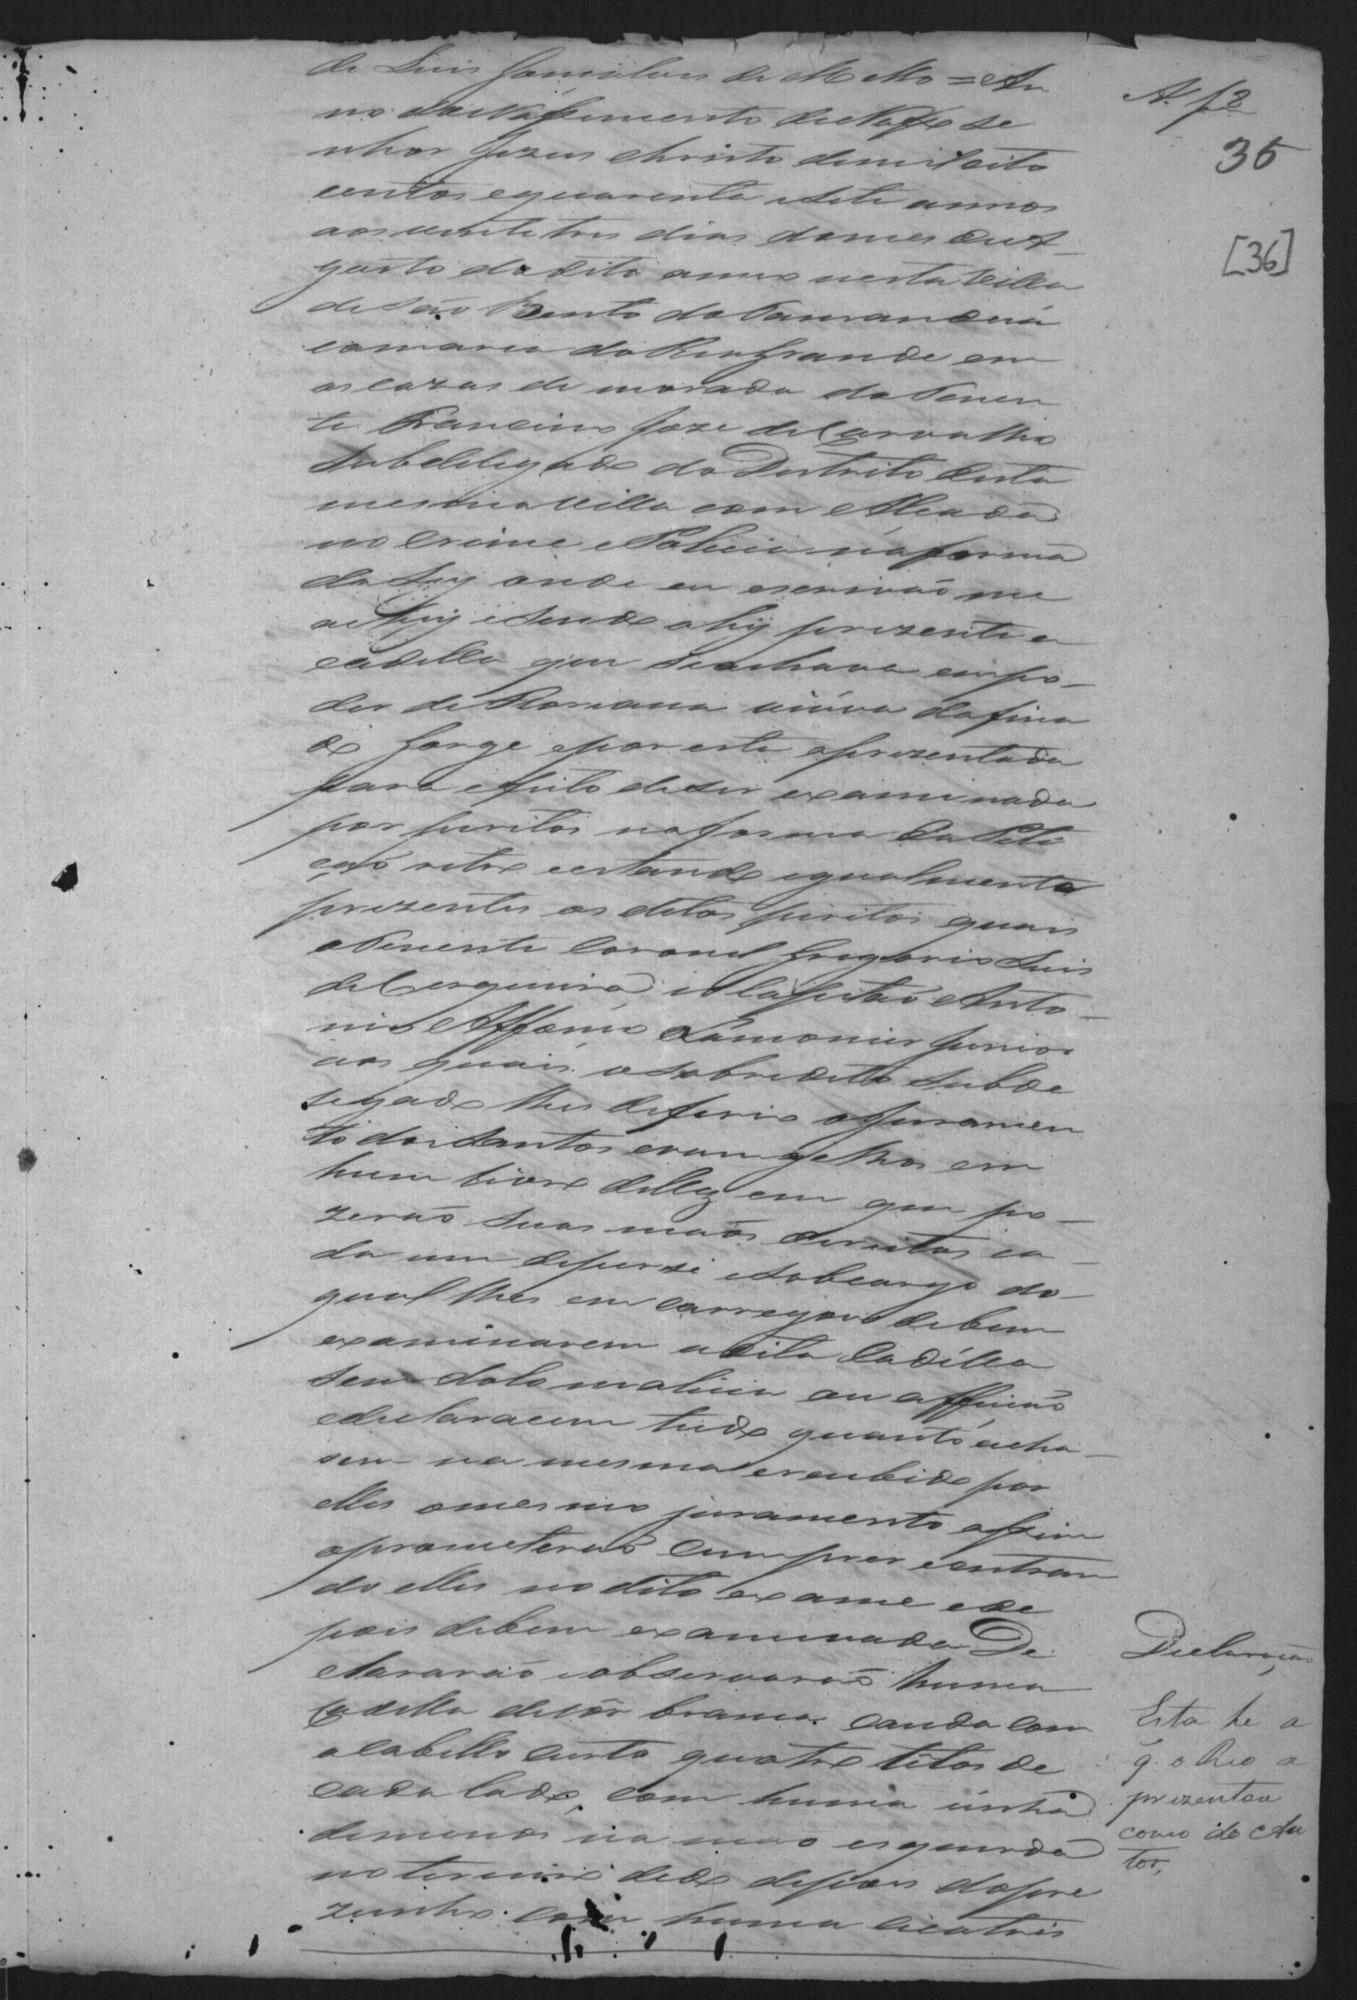 de Luis Gonsalves de Mello = An
no do Nassimento de Nosso Se
nhor Jezus Christo de mil oito
centos e quarenta e sete annos
aos vinte tres dias do mes de A-
gosto do dito anno nesta Villa
de São Bento do Tamanduá
comarca do Rio Grande em
as cazas de morada do Tenen
te Francisco Joze de Carvalho
Subdelegado do Destrito desta
mesma villa com Alçada
no Crime e Policia na forma
da Ley onde eu escrivão me
achey e sendo ahy prezente a
cadella que se achava em po-
der de Roviana viúva do fina
do Jorge e por este aprezentada
para efeito de ser examinada
por peritos na forma da Peti
ção retro e estando igualmente
prezentes os ditos peritos quais
o Tenente Coronel Gregorio Luis
de Cerqueira, e o Capitão Anto-
nio Affonso Lamonier Junior
aos quais o sobredito Subde
legado lhes deferio o juramen
to dos Santos evangelhos em
hum livro delles em que po-
zerão suas maos direitas ca-
da um de per si e sob cargo do-
qual lhes encarregou de bem
examinarem a dita Cadella
sem dolo malicia ou affeição
e declararem tudo quanto acha-
sem na mesma e recebido por
elles o mesmo juramento assim
o prometerão cumprir e entran
do elles no dito exame e de
pois de bem examinada De
clararão e observarão huma
Cadella de côr branca cauda com
o cabello curto quatro têtas de
cada lado, com huma únha
de menos na mao esquerda
no terceiro dedo depois do pre
zunho com huma cicatris
A. f 8
35
[36]
Declaração
Esta he a
q. o Reo a
prezentou
como do Au
tor,